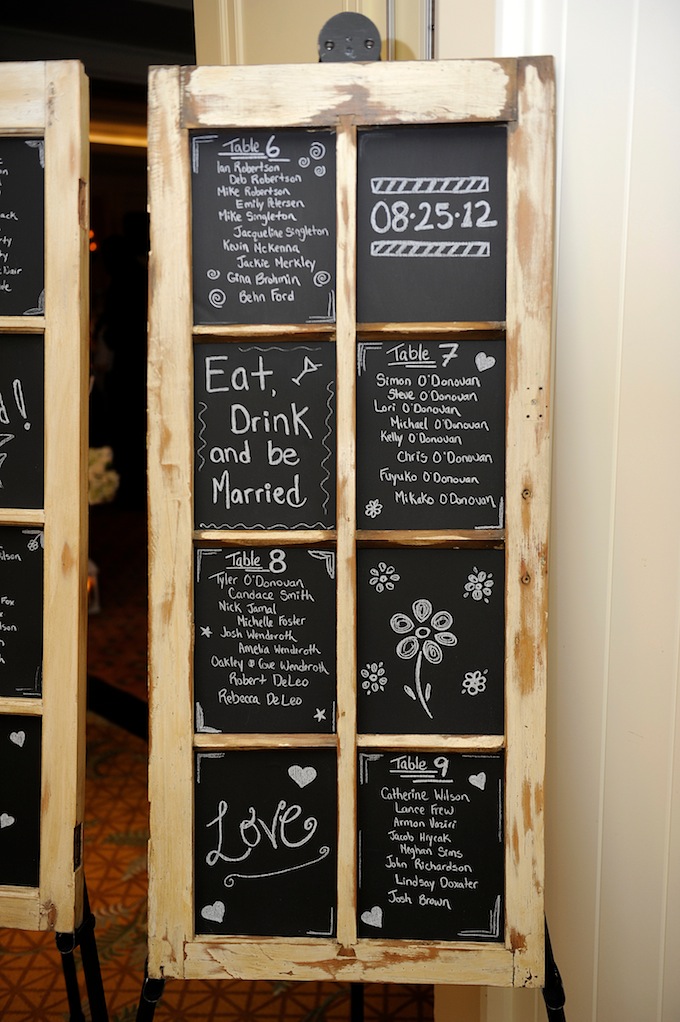 Table 6
Ian Robertson
Deb Robertson
Mike Robertson
Emily Petersen
Mike Singleton
Jacqueline Singleton
Kevin McKenna
Jackie Merkley
Gina Brohmin
Behn Ford
08·25·12
Eat,
Drink
and be
Married
Table 7
Simon O'Donovan
Steve O'Donovan
Lori O'Donovan
Michael O'Donovan
Kelly O'Donovan
Chris O'Donovan
Fuyuko O'Donovan
Mikako O'Donovan
Table 8
Tyler O'Donovan
Candace Smith
Nick Jamal
Michelle Foster
Josh Wenderoth
Amelia Wenderoth
Oakley & Cove Wenderoth
Robert DeLeo
Rebecca DeLeo
Love
Table 9
Catherine Wilson
Lance Frew
Arman Vaziri
Jacob
Meghan Sims
John Richardson
Lindsay Doxater
Josh Brown